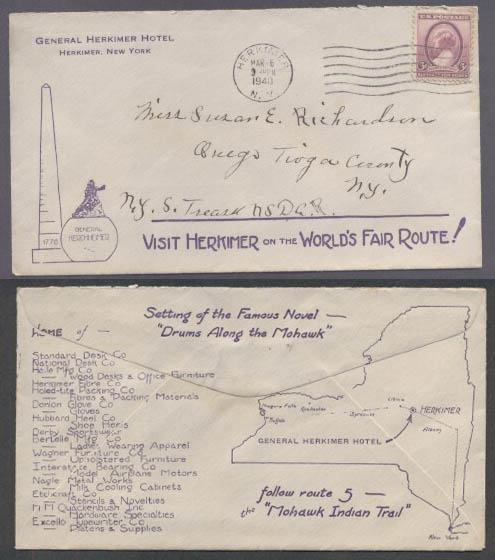 GENERAL HERKIMER HOTEL
HERKIMER, NEW YORK
HERKIMER
MAR 6
1940
N.Y.
U.S. POSTAGE
3¢ 3¢
Miss Susan E. Richardson
Owego Tioga County
N.Y.
N.Y. S. Treas. N.S.D.A.R.
1776
GENERAL
HERCHHEIMER
VISIT HERKIMER ON THE WORLD'S FAIR ROUTE!
Setting of the Famous Novel —
"Drums Along the Mohawk"
HOME of —
Standard Desk Co
National Desk Co
Haile Mfg Co
— Wood Desks & Office Furniture
Herkimer Fibre Co
Molded-tite Packing Co
— Fibres & Packing Materials
Donlon Glove Co
— Gloves
Hubbard Heel Co
— Shoe Heels
Derby Sportswear
Bertelle Mfg Co
— Ladies Wearing Apparel
Wagner Furniture Co
— Upholstered Furniture
Interstate Bearing Co
— Model Airplane Motors
Nagle Metal Works
— Milk Cooling Cabinets
Etchcraft Co
— Stencils & Novelties
H M Quackenbush Inc
— Hardware Specialties
Excello Typewriter Co
— Platens & Supplies
Niagara Falls
Rochester
Buffalo
Syracuse
Utica
HERKIMER
Albany
GENERAL HERKIMER HOTEL
follow route 5 —
the "Mohawk Indian Trail"
New York